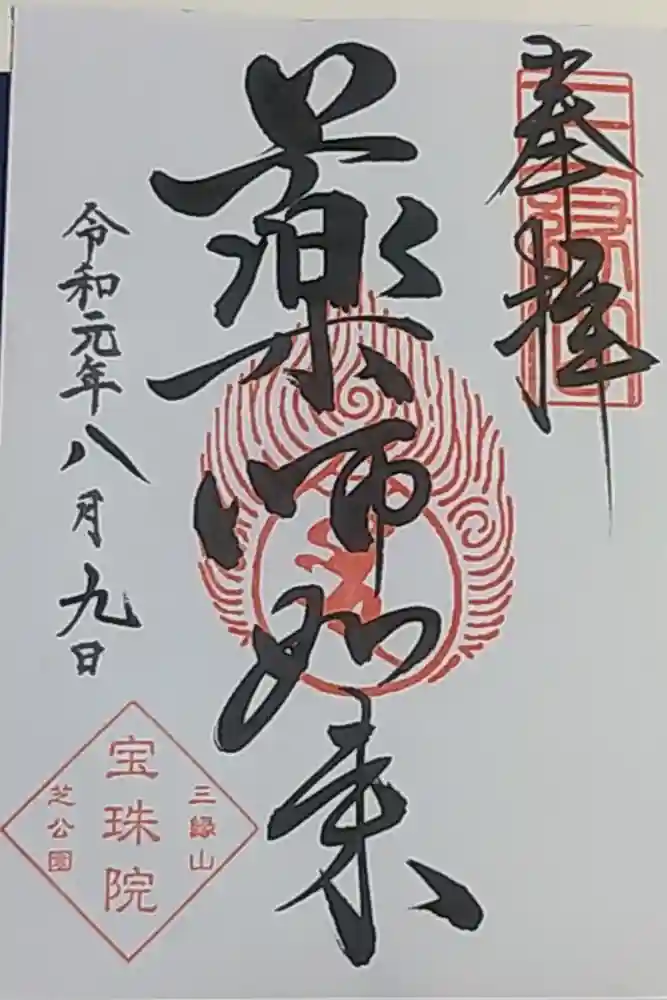 奉拝
三縁山
薬師如来
令和元年八月九日
三縁山
宝珠院
芝公園